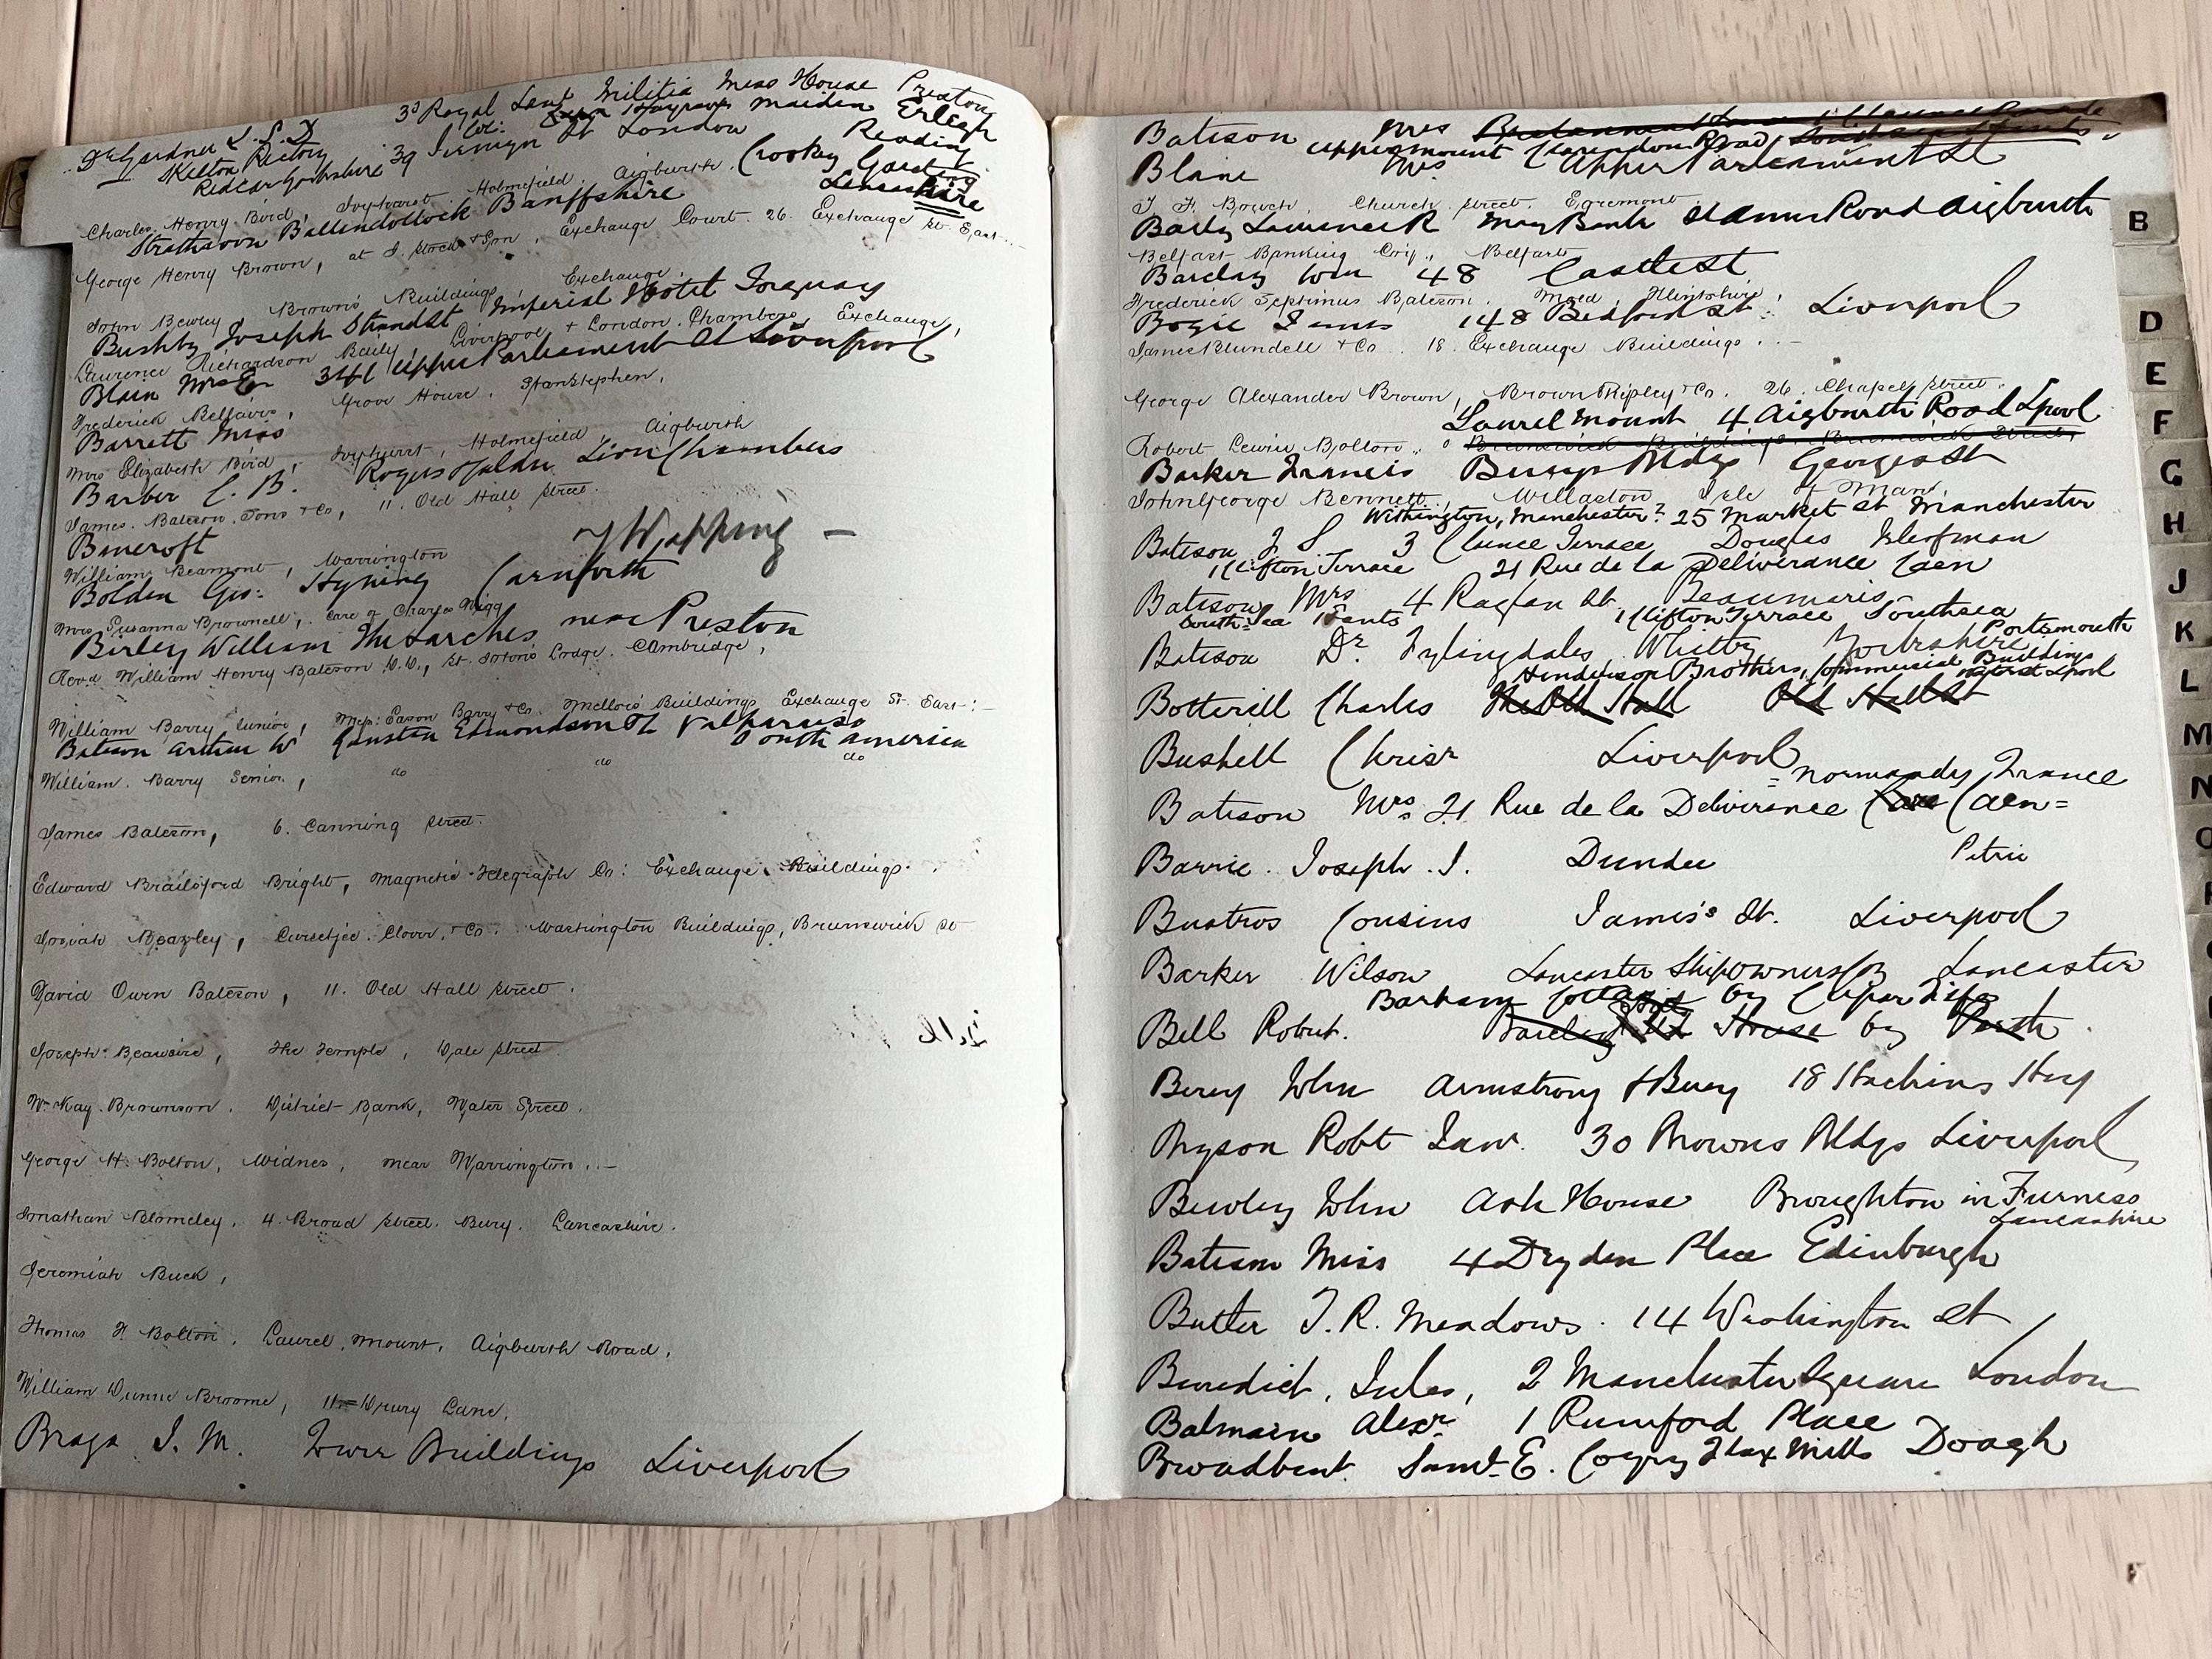 3d Royal Lanc Militia Mess House Preston
Maiden Erlegh
Dr Gardner L.S.D
39 Jermyn St London Reading
Kelton Rectory
Redcar Yorkshire
Charles Henry Bird, Ivyhurst. Holmefield. Aigburth.
Strathavon Ballindolloch Banffshire
George Henry Brown, at Exchange Court. 26. Exchange St. East.
John Bewley, Brown's Buildings, Exchange.
Bushby Joseph Strandst Imperial Hotel Torquay
Laurence Richardson Baily, Liverpool & London. Chambers, Exchange,
Blain Mrs E 341 Upper Parliament St Liverpool
Frederick Bellairs, Grove House.
Barrett Miss
Mrs Elizabeth Bird, Ivyhurst, Holmefield, Aigburth
Barber C. B. Lion Chambers
James. Bateson. Sons & Co, 11. Old Hall Street.
Bencroft 7 Wapping –
William Beamont, Warrington
Bolden Geo: Hyning Carnforth
Mrs Susanna Brownell, care of Charles Wigg
Birley William The Larches near Preston
Revd William Henry Bateson D.D., St. John's Lodge. Cambridge,
William Barry Junior, Mess: Eason Barry & Co. Mellor's Buildings Exchange St. East:-
Bateson Arthur W Edmondson Valparaiso
South America
William. Barry Senior, do do do
James Bateson, 6. Canning Street.
Edward Brailsford Bright, Magnetic Telegraph Co: Exchange Buildings.
Josiah Beazley, Cursetjee. Clover, & Co. Washington Buildings, Brunswick St
David Owen Bateson, 11. Old Hall Street.
Joseph: Beausire, The Temple, Dale Street.
Wm Kay. Brownson. District Bank, Water Street.
George H. Bolton, Widnes, near Warrington.
Jonathan Blomeley, 4. Broad Street. Bury. Lancashire.
Jeremiah Buck,
Thomas H Bolton, Laurel Mount, Aigburth Road,
William Dunne Broome, 11 Drury Lane,
Braga J. M. Tower Buildings Liverpool
Bateson Mrs
Uppermount Clarendon Road
Blane Mrs Upper Parliament St
T. F. Bowch Church Street. Egremont
Baily Laurence R May Bank St Annes Road Aigburth
Belfast Banking Coy., Belfast
Barclay Wm 48 Castle St
Frederick Septimus Bateson. Mold, Flintshire,
Bogie James 148 Bedford St. Liverpool
James Blundell & Co. 18. Exchange Buildings.
George Alexander Brown, Brown Shipley & Co. 26. Chapel Street.
Laurel Mount 4 Aigburth Road Lpool
Robert Lewin Bolton, Brunswick Buildings Brunswick Street,
Barker Francis Bldgs George St
John George Bennett, Willaston Isle of Man,
Withington, Manchester? 25 Market St Manchester
Bateson J S 3 Clarence Terrace Douglas Isle of Man
1 Clifton Terrace 21 Rue de la Deliverance Caen
Bateson Mrs 4 Raglan St. Beaumaris
South-Sea Hants 1 Clifton Terrace Southsea Portsmouth
Bateson Dr. Fylingdales Whitby Yorkshire
Henderson Brothers, Commercial Buildings Water St Lpool
Botterill Charles The Old Hall Old Hall St
Bushell Chrisr Liverpool
Normandy France
Bateson Mrs 21 Rue de la Deliverance Caen Caen =
Barrie. Joseph. J. Dundee Petrie
Bustros Cousins James's St. Liverpool
Barker Wilson Lancaster Shipowners Co Lancaster
Barham Cottage by Cupar Fife
Bell Robert. House by Perth
Berey John Armstrong & Berey 18 Hackins Hey
Bryson Robt Jas. 30 Browns Bldgs Liverpool
Bewley John Ash House Broughton in Furness
Lancashire
Bateson Miss 4 Dryden Place Edinburgh
Butler T. R. Meadows. 14 Washington St
Benedict, Jules, 2 Manchester Square London
Balmain Alexr 1 Rumford Place
Broadbent. Saml. E. Cogry Flax Mills Doagh
B
D
E
F
G
H
J
K
L
M
N